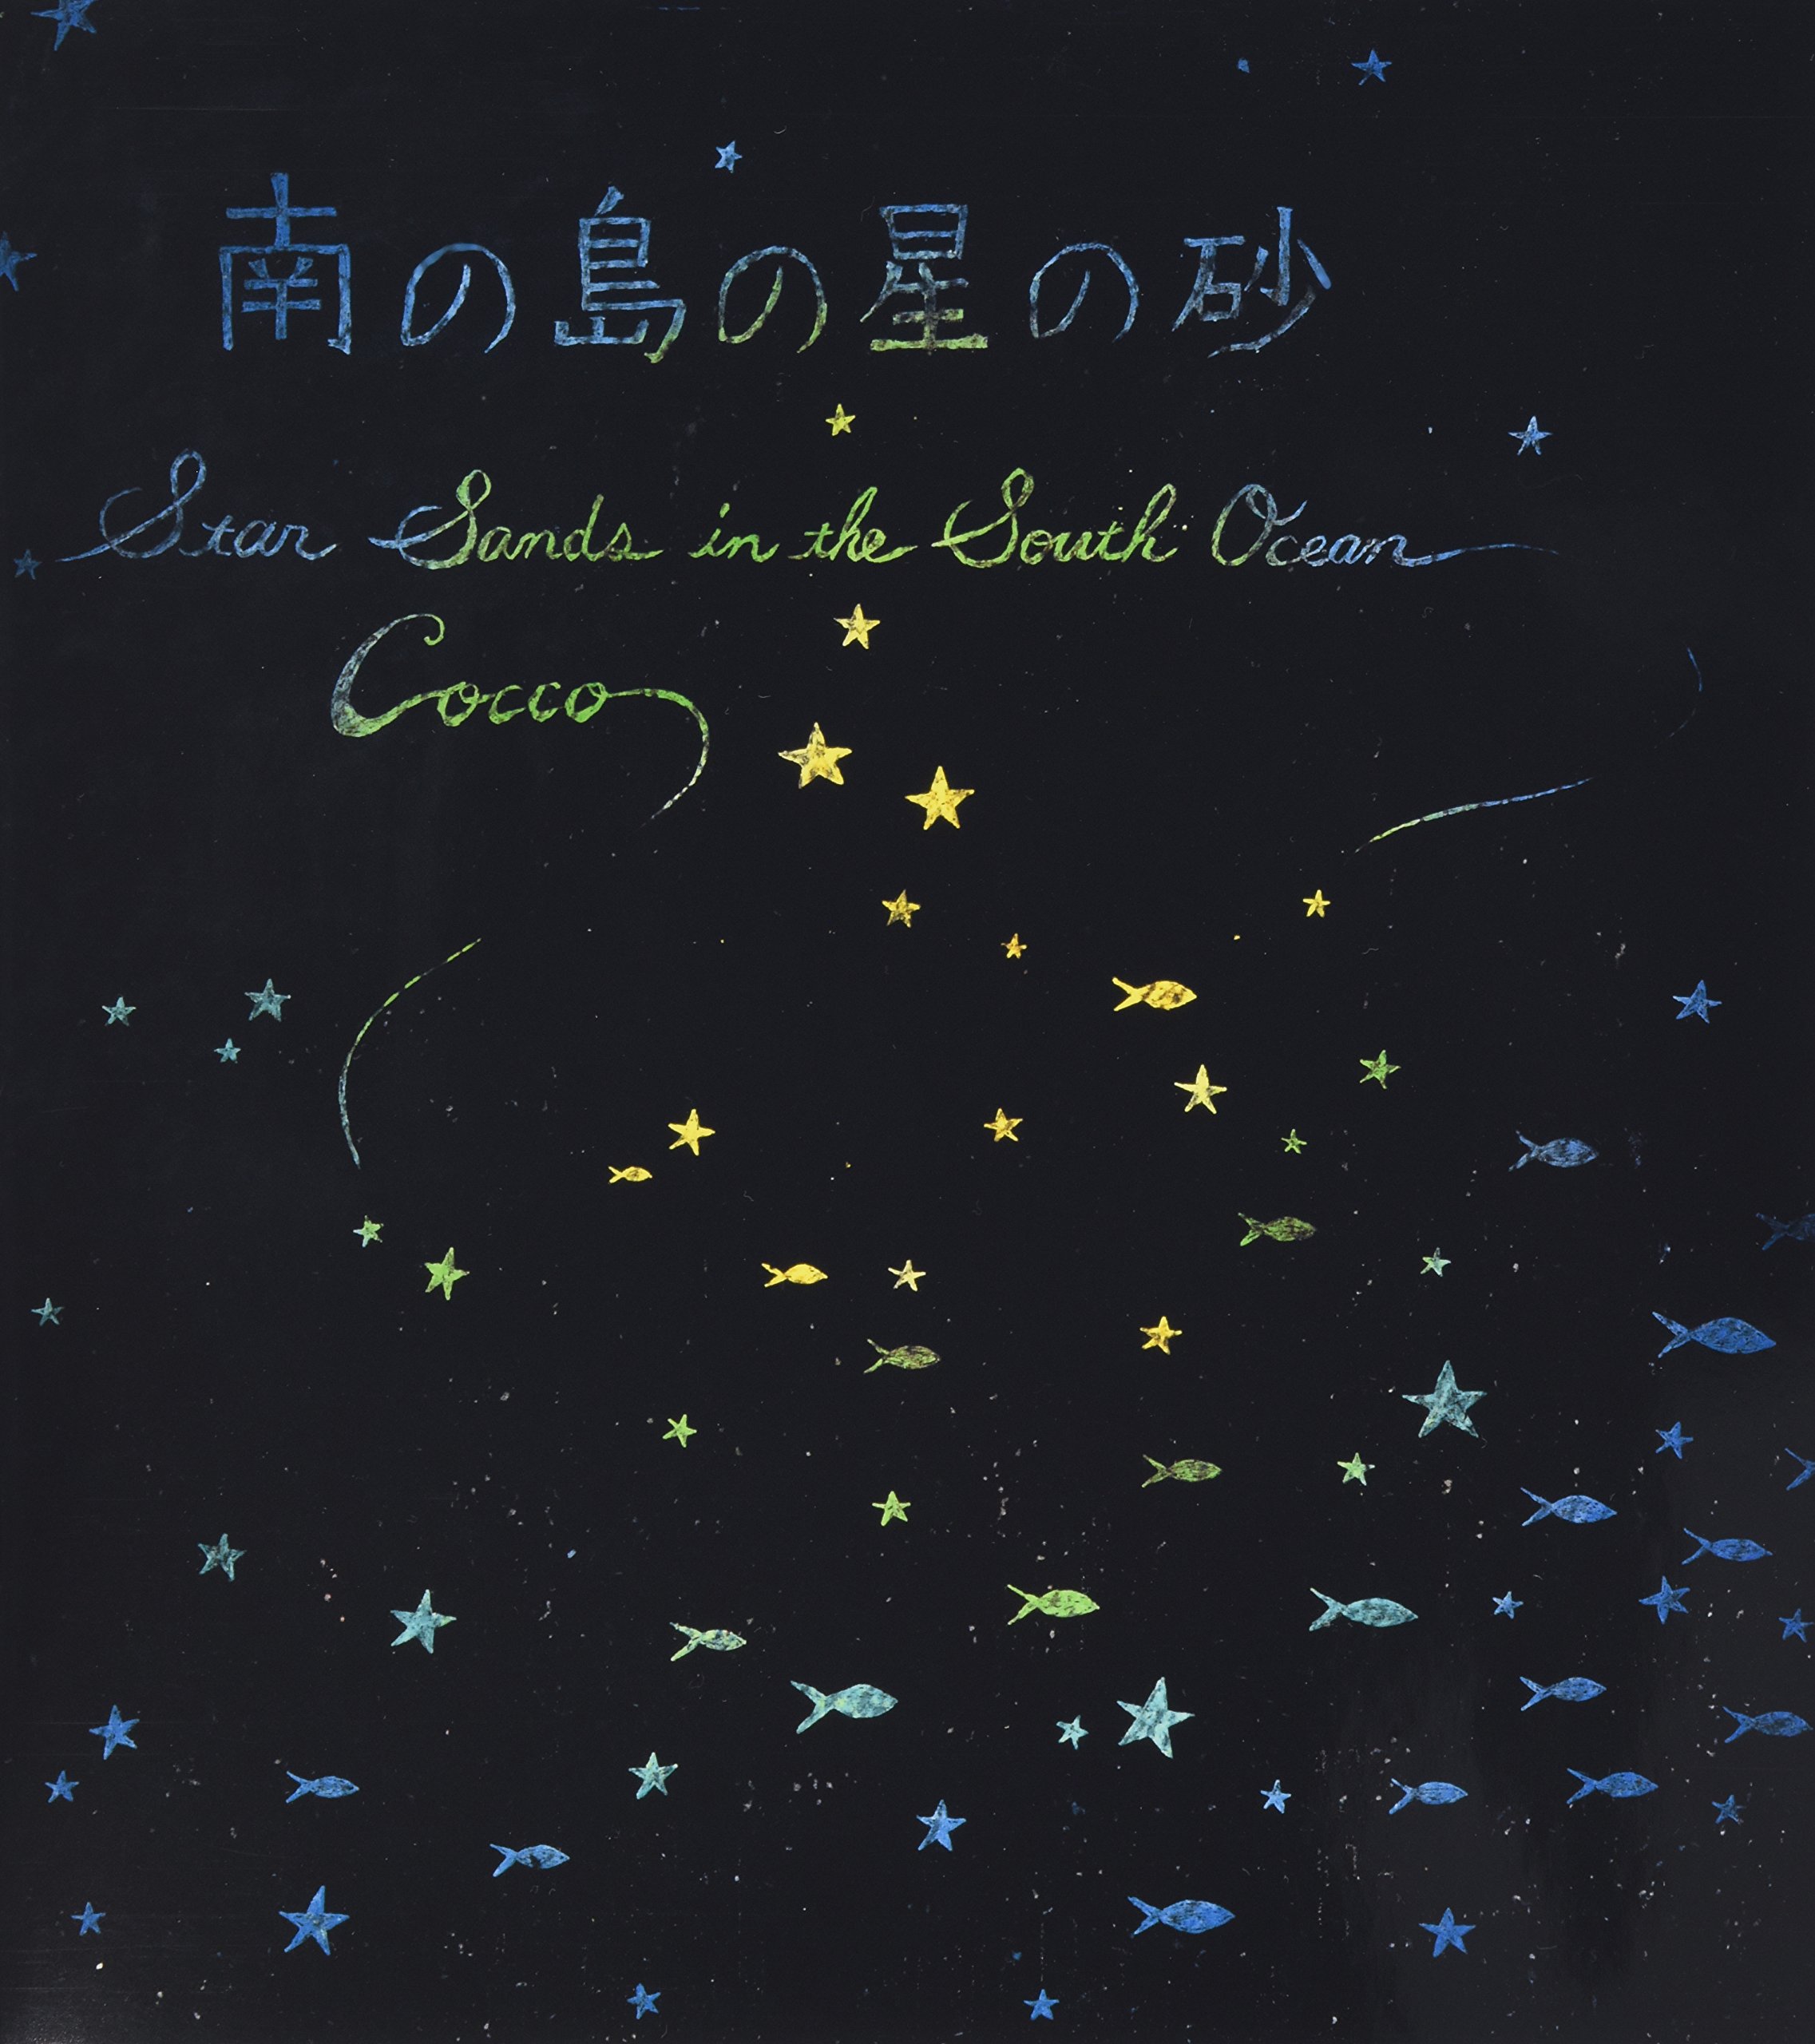 南の島の星の砂
Star Sands in the South Ocean
Cocco